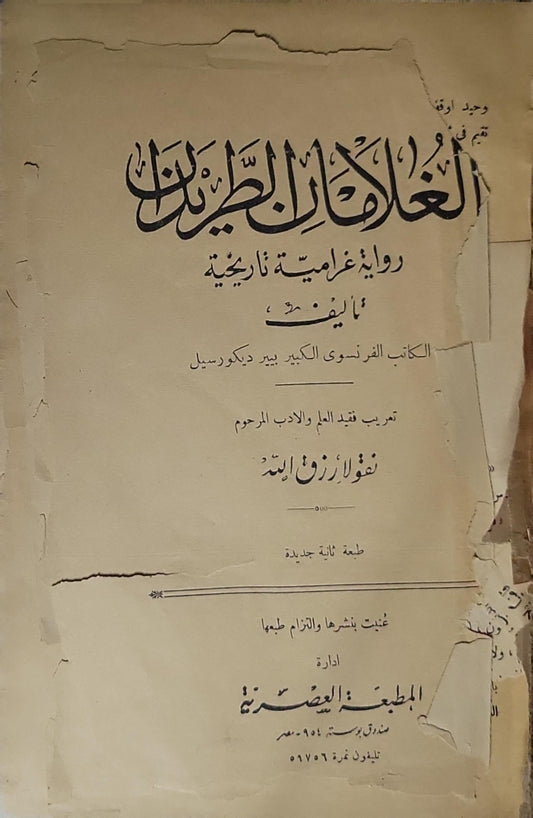 وحيد اوقف
تقيم في
الغُلَامَان الطَّرِيْدَان
رواية غرامية تاريخية
تأليف
الكاتب الفرنسوى الكبير بيير ديكورسيل
تعريب فقيد العلم والادب المرحوم
نقولا رزق الله
طبعة ثانية جديدة
عُنيت بنشرها والتزام طبعها
ادارة
المطبعة العصرية
صندوق بوسته ٩٥٤ - مصر
تليفون نمرة ٥٩٧٥٦